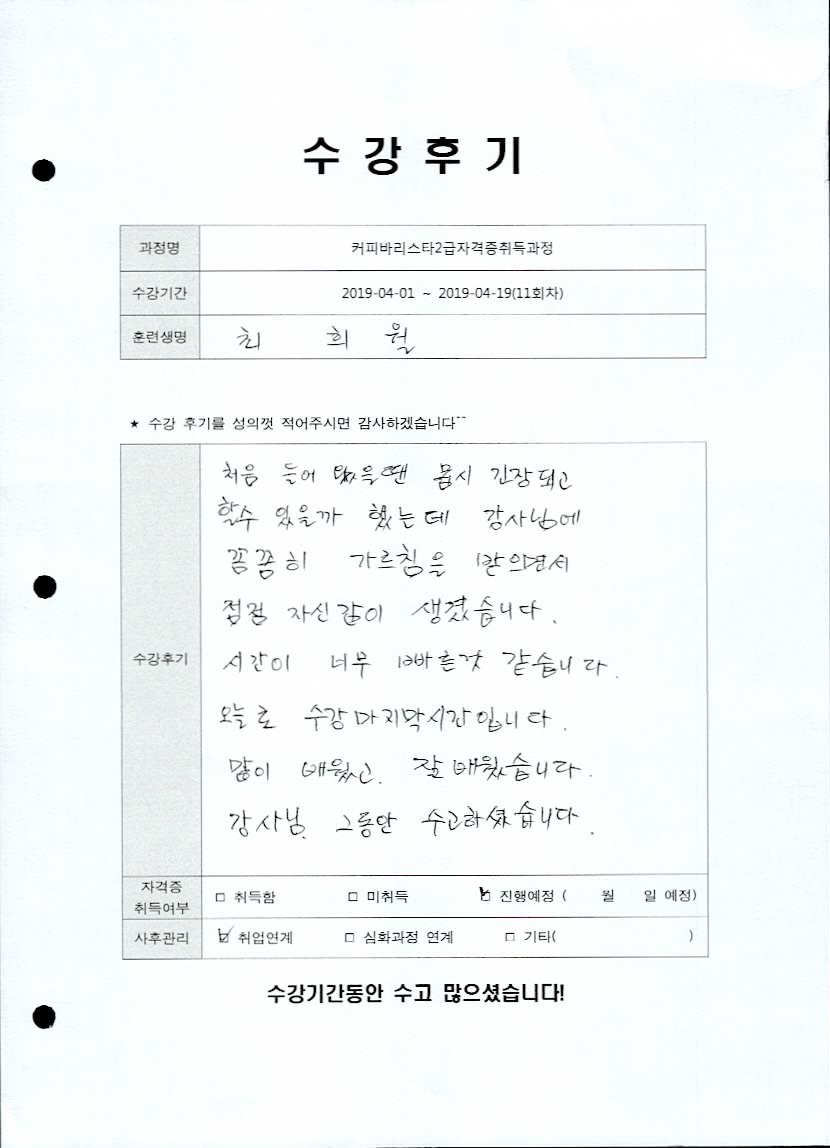 수강후기
과정명 커피바리스타2급자격증취득과정
수강기간 2019-04-01 ~ 2019-04-19(11회차)
훈련생명 최 희 월
★ 수강 후기를 성의껏 적어주시면 감사하겠습니다^^
처음 들어 왔을땐 몹시 긴장되고
할수 있을까 했는데 강사님에
꼼꼼히 가르침을 받으면서
점점 자신감이 생겼습니다.
수강후기
시간이 너무 빠른것 같습니다.
오늘로 수강마지막시간입니다.
많이 배웠고. 잘 배웠습니다.
강사님. 그동안 수고하셨습니다.
자격증
취득여부 □ 취득함 □ 미취득 ☑ 진행예정 ( 월 일 예정)
사후관리 ☑ 취업연계 □ 심화과정 연계 □ 기타( )
수강기간동안 수고 많으셨습니다!